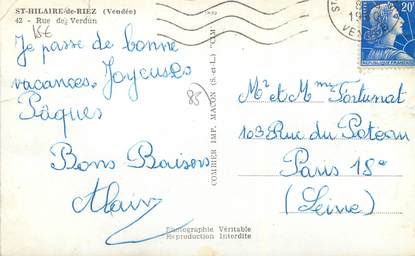 ST-HILAIRE-de-RIEZ (Vendée)
42 - Rue de Verdun
15€
Je passe de bonne
vacances. Joyeuses
Pâques
Bons Baisers
Alain
85
COMBIER IMP. MACON (S.-et-L.) "CIM"
Photographie Véritable
Reproduction Interdite
20F
Mr et Mme Fortunat
103 Rue du Poteau
Paris 18e
(Seine)